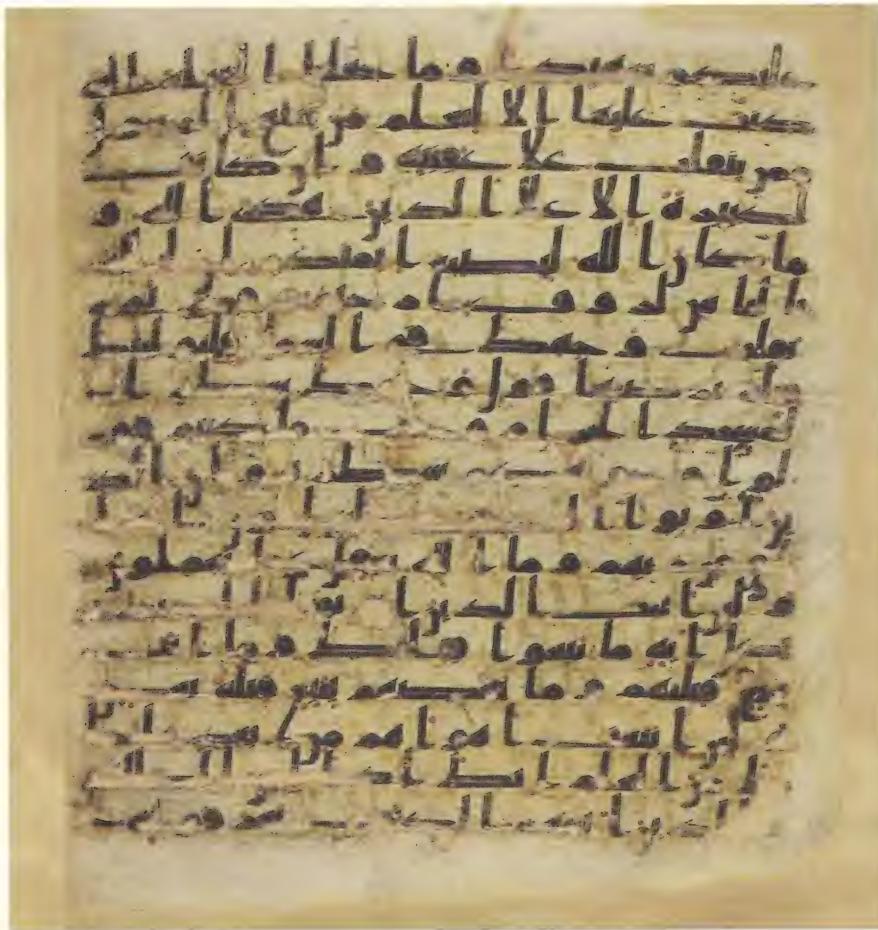 عليكم شهيدا و ما جعلنا القبله التى
كنت عليها الا لنعلم من يتبع الرسول
ممن ينقلب علا عقبيه و ان كانت
لكبيرة الا علا الذين هدى الله و
ما كان الله ليضيع ايمنكم ان الله
با لناس لروف رحيم قد نرى
تقلب وجهك فى السما فلنو
لينك قبلة ترضيها فول وجهك شطر
المسجد الحرام و حيث ما كنتم فو
لوا وجوهكم شطره و ان الذ
ين اوتوا الكتب ليعلمون انه ا
لحق من ربهم و ما الله بغفل عما يعملون
و لئن اتيت الذين اوتوا الكتب
بكل ايه ما تبعوا قبلتك و ما انت
بتبع قبلتهم و ما بعضهم بتبع قبلة بعض
و لئن اتبعت اهواهم من بعد ما جا
ك من العلم انك اذا لمن الظلمين
الذين اتينهم الكتب يعرفونه